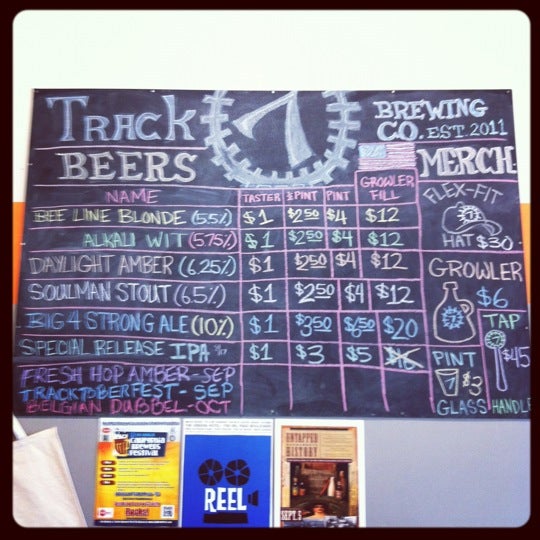 TRACK 7 BREWING
CO. EST. 2011
BEERS
MERCH
NAME TASTER ½ PINT PINT GROWLER FILL
BEE LINE BLONDE (5.5%) $1 $2.50 $4 $12
ALKALI WIT (5.75%) $1 $2.50 $4 $12
DAYLIGHT AMBER (6.25%) $1 $2.50 $4 $12
SOULMAN STOUT (6.5%) $1 $2.50 $4 $12
BIG 4 STRONG ALE (10%) $1 $3.50 $6.50 $20
SPECIAL RELEASE IPA $1 $3 $5 $16
FRESH HOP AMBER - SEP
TRACKTOBERFEST - SEP
BELGIAN DUBBEL - OCT
FLEX-FIT
7
HAT $30
GROWLER
7
$6
PINT
7
$3
GLASS
TAP
7
$45
HANDLE
CALIFORNIA
BREWERS
FESTIVAL
REEL
UNTAPPED
HISTORY
SEPT. 5